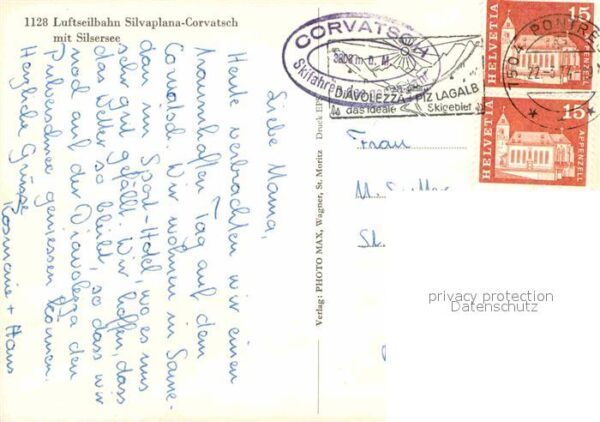 1128 Luftseilbahn Silvaplana-Corvatsch
mit Silsersee
Liebe Mama,
Heute verbrachten wir einen
traumhaften Tag auf dem
Corvatsch. Wir wohnen in Same-
dan im Sport-Hotel, wo es uns
sehr gut gefällt. Wir hoffen, dass
das Wetter so bleibt, so dass wir
noch auf der Diavolezza den
Pulverschnee geniessen können.
Herzliche Grüsse
Rosmarie + Hans
Verlag: PHOTO MAX, Wagner, St. Moritz
Druck
CORVATSCH
3303 m ü. M.
Skifahren
DIAVOLEZZA
PIZ LAGALB
das ideale
Skigebiet
7504 PONTRE
HELVETIA
15
APPENZELL
HELVETIA
15
APPENZELL
Frau
M.
St.
privacy protection
Datenschutz